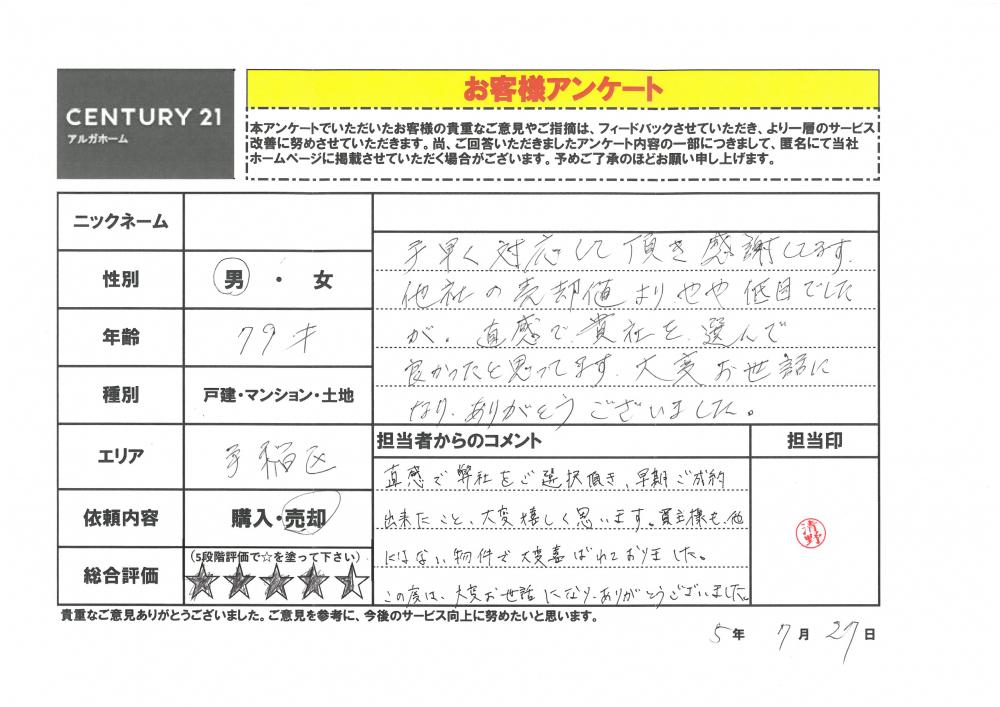 CENTURY 21
アルガホーム
お客様アンケート
本アンケートでいただいたお客様の貴重なご意見やご指摘は、フィードバックさせていただき、より一層のサービス
改善に努めさせていただきます。尚、ご回答いただきましたアンケート内容の一部につきまして、匿名にて当社
ホームページに掲載させていただく場合がございます。予めご了承のほどお願い申し上げます。
ニックネーム
性別
男 ・ 女
年齢
79才
種別
戸建・マンション・土地
エリア
手稲区
依頼内容
購入・売却
総合評価
(5段階評価で☆を塗って下さい)
手早く対応して頂き感謝してます。
他社の売却値よりやや低目でした
が、直感で貴社を選んで
良かったと思ってます。大変お世話に
なり、ありがとうございました。
担当者からのコメント
担当印
直感で弊社をご選択頂き、早期ご成約
出来たこと、大変嬉しく思います。買主様も、他
にはない物件で大変喜ばれておりました。
この度は、大変お世話になり、ありがとうございました。
清野
貴重なご意見ありがとうございました。ご意見を参考に、今後のサービス向上に努めたいと思います。
5年 7月 27日